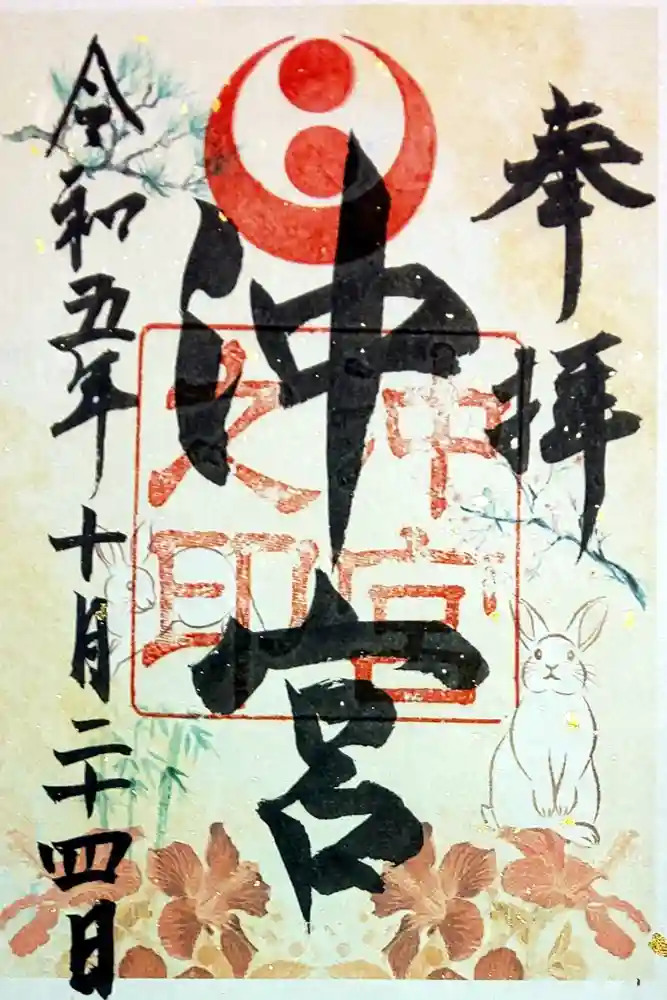 奉拝
沖宮
沖宮
之印
令和五年十月二十四日